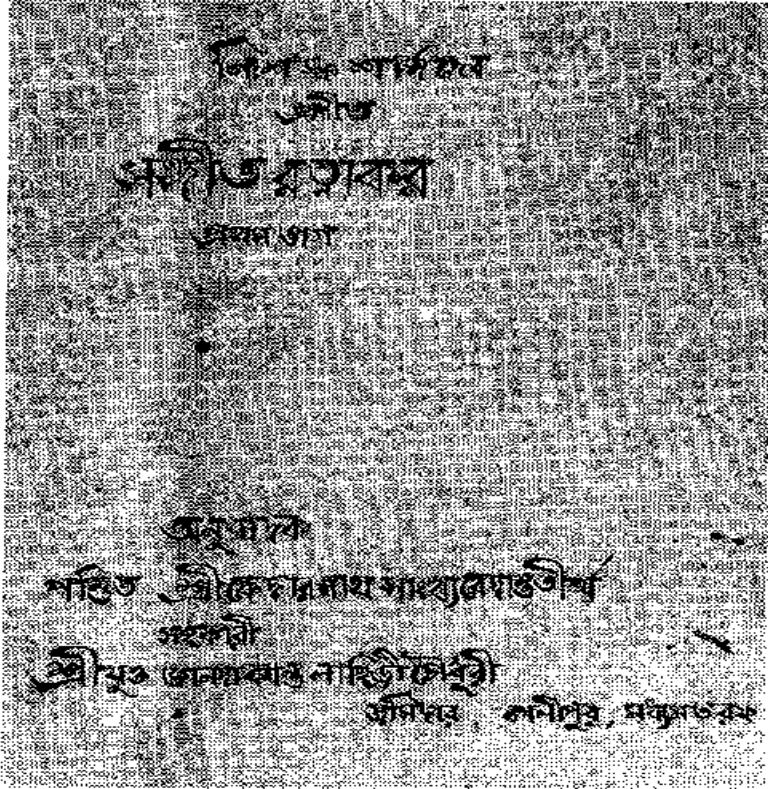 নিশঙ্ক শার্ঙ্গদেব
প্রণীত
সঙ্গীত রত্নাকর
প্রথম ভাগ
অনুবাদক
পণ্ডিত শ্রীকেদারনাথ সাংখ্যবেদান্ততীর্থ
সহকারী
শ্রীযুক্ত লাহিড়ীচৌধুরী
জমিদার কালীপুর, মধ্যমতরফ